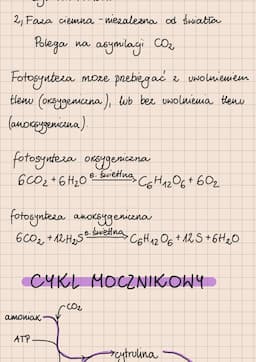 2, Faza ciemna - niezależna od światła
Polega na asymilacji CO₂
Fotosynteza może przebiegać z uwolnieniem
tlenu (oksygeniczna), lub bez uwolnienia tlenu
(anoksygeniczna).
fotosynteza oksygeniczna
6CO₂ + 6H₂O e. świetlna C₆H₁₂O₆ + 6O₂
fotosynteza anoksygeniczna
6CO₂ + 12H₂S e. świetlna C₆H₁₂O₆ + 12S + 6H₂O
CYKL MOCZNIKOWY
CO₂
amoniak
ATP
cytrulina